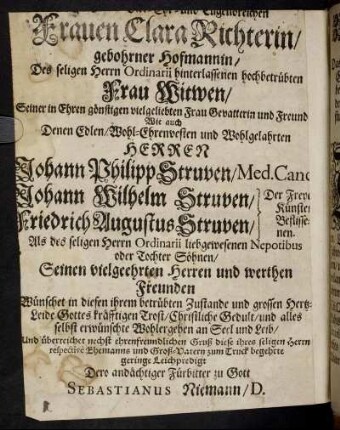 Ehr- und Tugendreichen
Frauen Clara Richterin/
gebohrner Hofmannin/
Des seligen Herrn Ordinarii hinterlassenen hochbetrübten
Frau Witwen/
Seiner in Ehren günstigen vielgeliebten Frau Gevatterin und Freund
Wie auch
Denen Edlen/Wohl-Ehrenvesten und Wohlgelahrten
HERREN
Johann Philipp Struven/Med. Cand
Johann Wilhelm Struven/
Friedrich Augustus Struven/
Der Freye
Künste
Beflisse
nen.
Als des seligen Herrn Ordinarii liebgewesenen Nepotibus
oder Tochter Söhnen/
Seinen vielgeehrten Herren und werthen
Freunden
Wünschet in diesen ihrem betrübten Zustande und grossen Hertz-
Leide Gottes kräfftigen Trost/Christliche Gedult/und alles
selbst erwünschte Wohlergehen an Seel und Leib/
Und überreichet nechst ehrenfreundlichen Gruß diese ihres seligen Herrn
respective Ehemanns und Groß-Vatern zum Truck begehrte
geringe Leichpredigt
Dero andächtiger Fürbitter zu Gott
SEBASTIANUS Niemann/D.